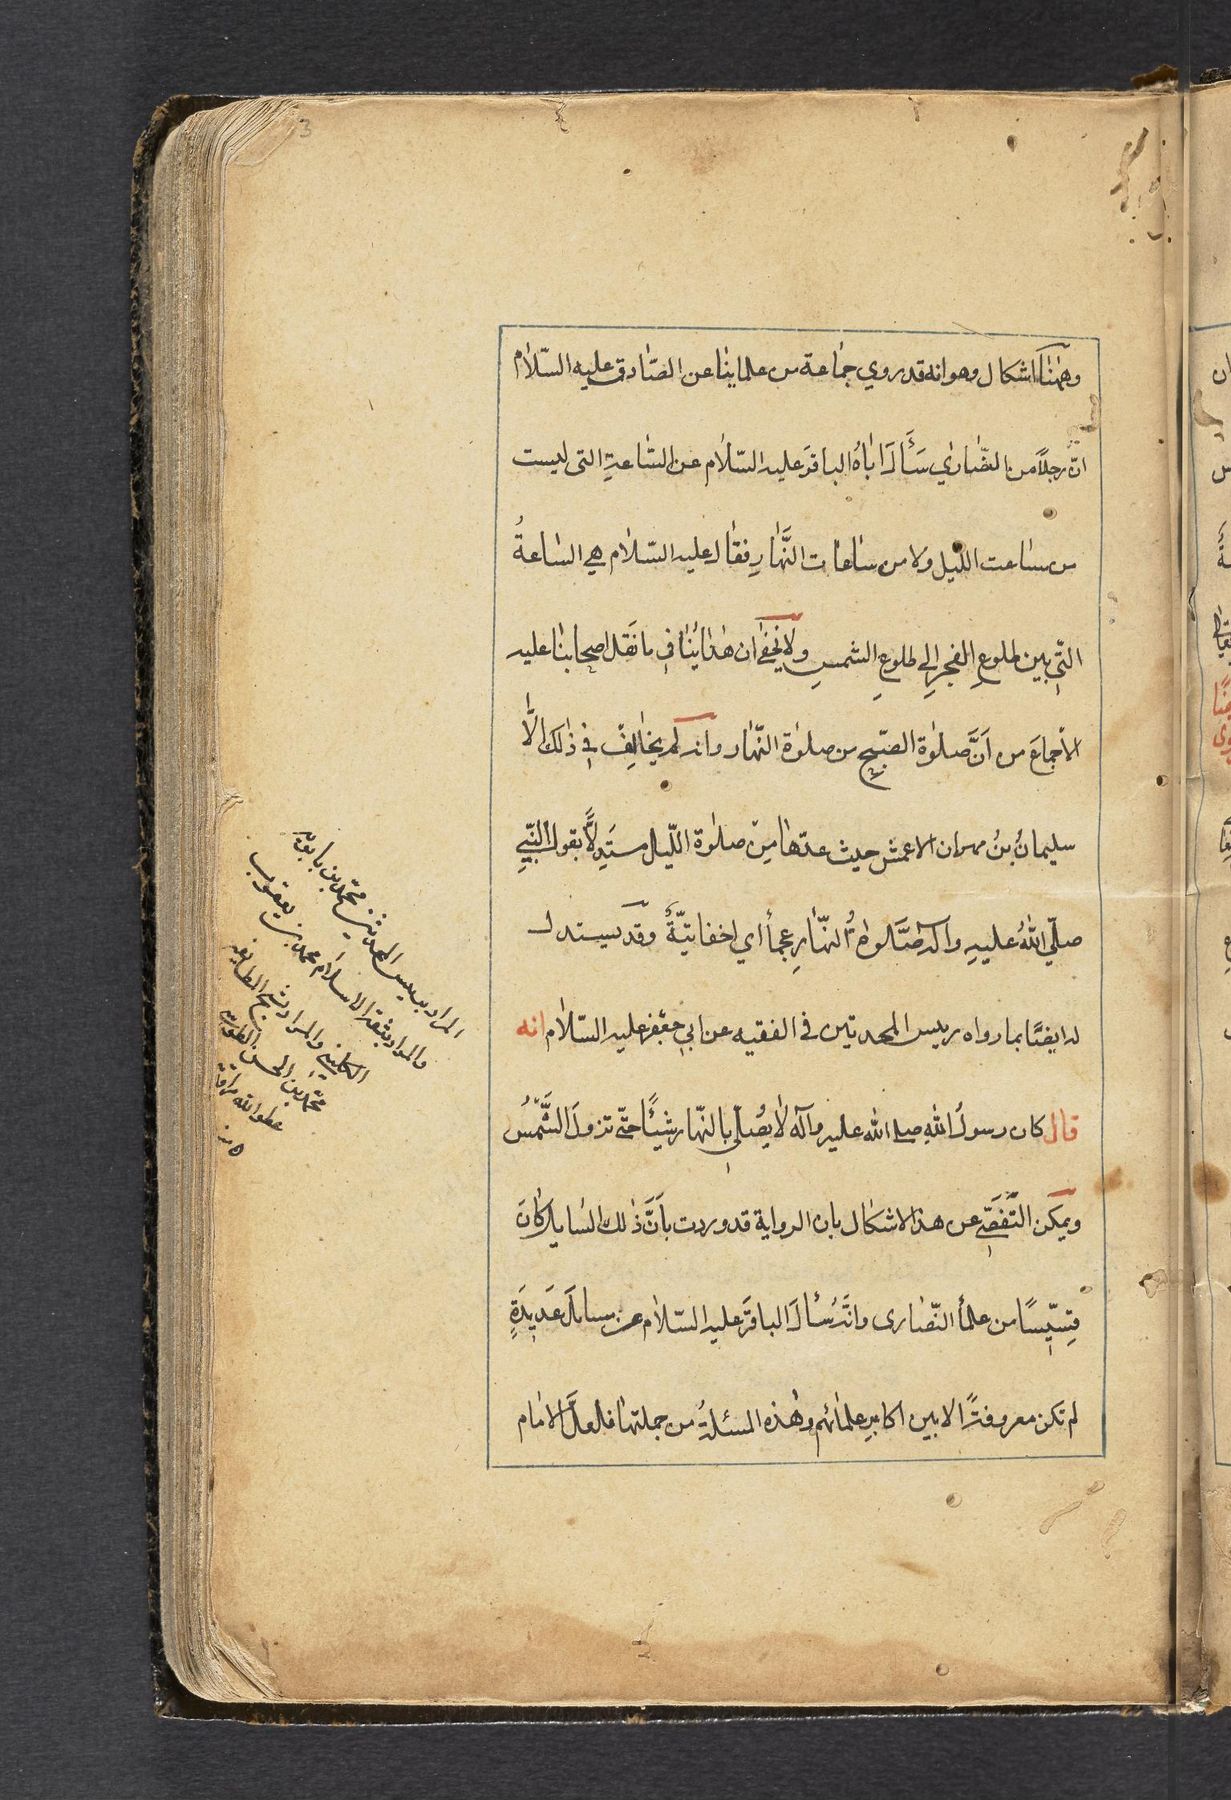 وههنا اشكال وهو انه قد روي جماعة من علماينا عن الصّادق عليه السّلام
انّ رجلاً من النصّاري سَأَلَ اباهُ الباقرَ عليه السّلام عن السّاعةِ التى ليست
من ساعت الليل ولا من ساعات النَّهارِ فقال عليه السّلام هي الساعةُ
التّي بين طلوعِ الفجرِ الي طلوعِ الشمسِ ولا يخفي ان هذا يُنافي ما نَقَل اصحابنا عليه
الأجماعَ من اَنَّ صلوة الصّبح من صلوة النّهار وانه لم يخالِف في ذلك الّا
سليمانُ بنُ مهران الاعمش حيث عدّها مِن صلوة اللّيل مستدِلاًّ بقول النبّيِ
صلّي اللّهُ عليهِ وآله صَلوةُ النّهارِ عجمأ اي اخفاتيّةٌ وقد يستدل
له ايضًا بما رواه رييس المحدثين في الفقيه عن ابي جعفر عليه السّلام انه
قال كان رسولُ اللّهِ صلي اللّه عليه وآله لا يُصلّي بالنّهار شيئًا حتّي تزولَ الشَّمْسُ
ويمكن التَّفَصّي عن هذا الاشكال بان الرواية قد وردت بأنَّ ذلك السايلَ كانَ
قِسّيسًا من علمأ النّصارى وانّه سُأل الباقرَ عليه السّلام عن مسايلَ عَدِيدَةٍ
لم تكن معروفةً الا بين اكابرِ علمائهم وهذه المسئلةُ من جملتها فلعلَّ الامام
المراد برييس المحدثين محمّد بن بابويه
والمراد بثقة الاسلام محمد بن يعقوب
الكليني والمراد بشيخ الطايفه
محمّد بن الحسن الطوسي
عطر اللّه مراقد